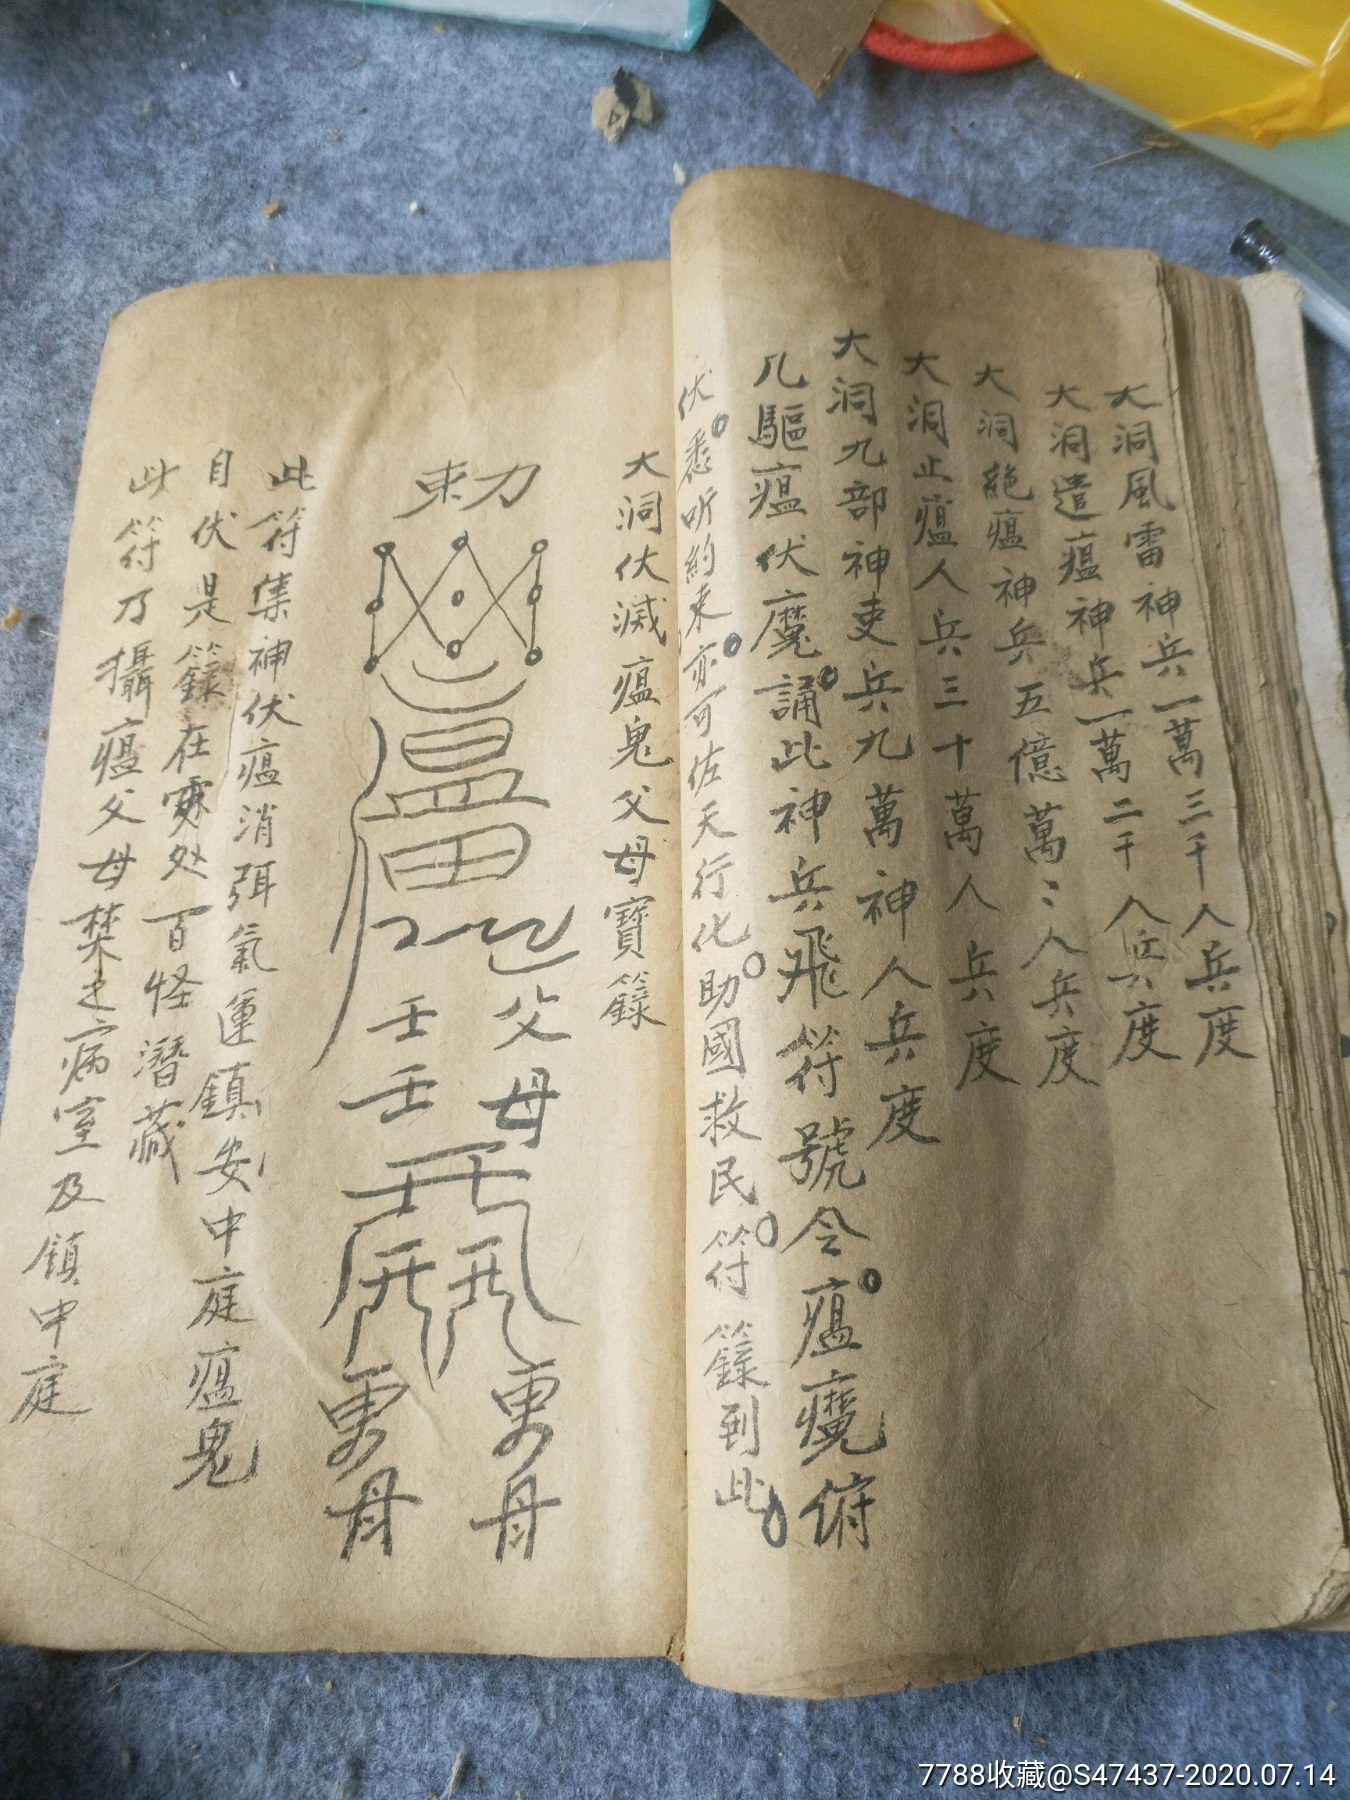 大洞風雷神兵一萬三千人兵度
大洞遣瘟神兵一萬二千人兵度
大洞絕瘟神兵五億萬〻人兵度
大洞止瘟人兵三十萬人兵度
大洞九部神吏兵九萬神人兵度
凡驅瘟伏魔誦此神兵飛符號令瘟癘俯
伏悉听約束亦可佐天行化助國救民符籙到此
大洞伏滅瘟鬼父母寶籙
勅
父母
壬壬
母
母
此符集神伏瘟消弭氣運鎮安中庭瘟鬼
自伏是籙在處百怪潛藏
此符乃攝瘟父母焚之病室及鎮中庭
7788收藏@S47437-2020.07.14